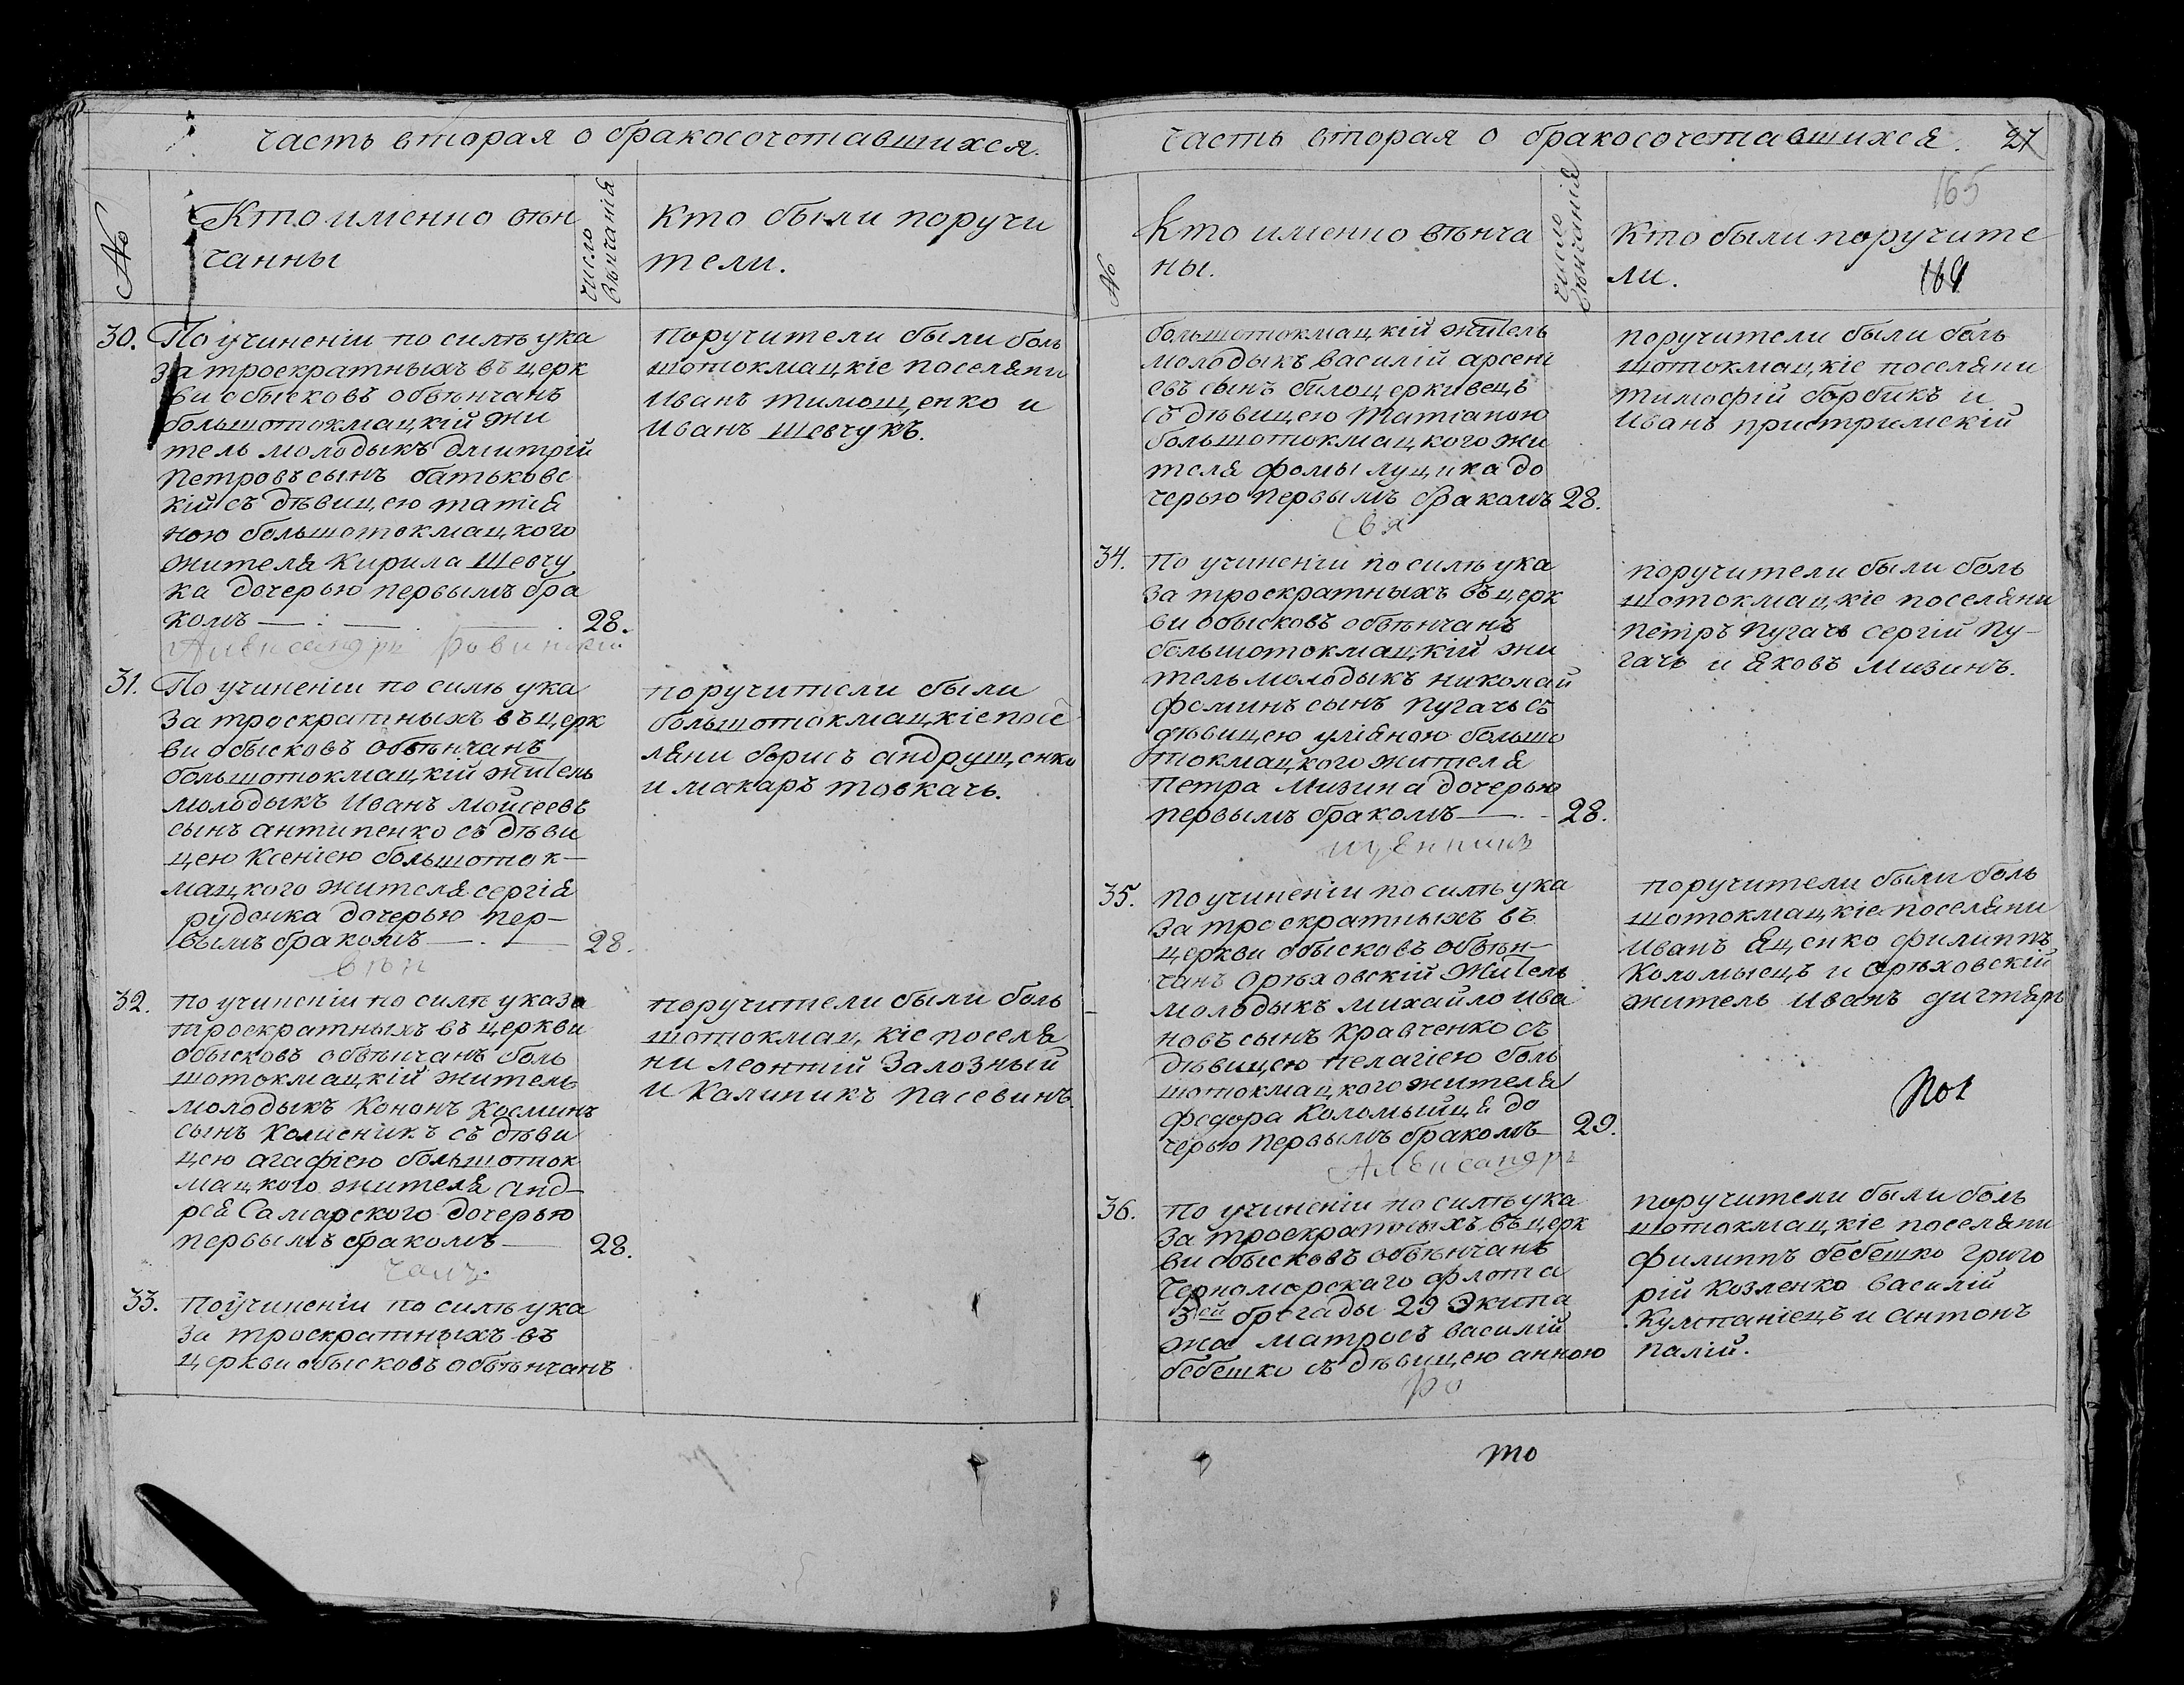 часть вторая о бракосочетавшихся.
№
Кто именно вѣн
чанны
число
вѣнчанія
Кто были поручи
тели.
30.
По учиненіи по силѣ ука
за троекратныхъ въ церк
ви обысковъ обвѣнчанъ
большотокмацкій жи
тель молодыкъ Дмитрій
Петровъ сынъ батьковс
кій съ дѣвицею татія
ною большотокмацкого
жителя Кирила Шевчу
ка дочерью первымъ бра
комъ 28.
Александръ
поручители были боль
шотокмацкіе поселяни
Иванъ тимощенко и
Иванъ Шевчукъ.
31.
По учиненіи по силѣ ука
за троекратныхъ въ церк
ви обысковъ обвѣнчанъ
большотокмацкій житель
молодыкъ Иванъ Мойсеевъ
сынъ антипенко съ дѣви
цею Ксеніею большоток-
мацкого жителя сергія
руденка дочерью пер-
вымъ бракомъ 28.
поручители были
большотокмацкіе посе
ляни борисъ андрущенко
и макаръ товкачь.
32.
По учиненіи по силѣ указа
троекратныхъ въ церкви
обысковъ обвѣнчанъ боль
шотокмацкій житель
молодыкъ Кононъ Косминъ
сынъ Колисникъ съ дѣви
цею агафіею большоток
мацкого жителя анд-
рея Самарского дочерью
первымъ бракомъ 28.
поручители были боль
шотокмацкіе поселя
ни леонтій Залозный
и Калиникъ Пасевинъ.
33.
По учиненіи по силѣ ука
за троекратныхъ въ
церкви обысковъ обвѣнчанъ
часть вторая о бракосочетавшихся. 27
165
№
Кто именно вѣнча
ны.
число
вѣнчанія
Кто были поручите
ли.
большотокмацкій житель
молодыкъ василій арсені
евъ сынъ билоцеркивецъ
съ дѣвицею татіаною
большотокмацкого жи
теля фомы луцика до
черью первымъ бракомъ 28.
поручители были боль
шотокмацкіе поселяни
тимофій борбикъ и
Иванъ пристримскій
34.
По учиненіи по силѣ ука
за троекратныхъ въ церк
ви обысковъ обвѣнчанъ
большотокмацкій жи
тель молодыкъ николай
фоминъ сынъ Пугачь съ
дѣвицею уліяною большо
токмацкого жителя
петра Мизина дочерью
первымъ бракомъ 28.
поручители были боль
шотокмацкіе поселяни
Петръ Пугачь сергій Пу-
гачь и яковъ Мизинъ.
35.
По учиненіи по силѣ ука
за троекратныхъ въ
церкви обысковъ обвѣн-
чанъ Орѣховскій житель
молодыкъ михайло ива
новъ сынъ Кравченко съ
дѣвицею пелагіею боль
шотокмацкого жителя
федора Коломыйця до
черью первымъ бракомъ 29.
Александръ
поручители были боль
шотокмацкіе поселяни
Иванъ яценко филиппъ
Коломыецъ и орѣховскій
житель иванъ дигтярь
36.
По учиненіи по силѣ ука
за троекратныхъ въ церк
ви обысковъ обвѣнчанъ
Черноморскаго флота
3ей бригады 29 Экипа
жа матросъ василій
бебешко съ дѣвицею анною
поручители были боль
шотокмацкіе поселяни
филиппъ бебешко григо
рій Козленко василій
и антонъ
палій.
то